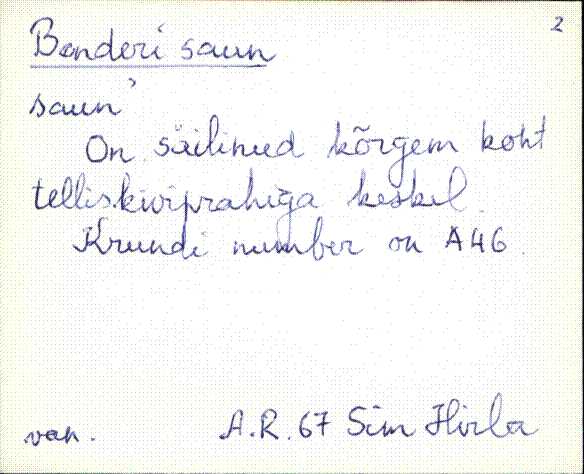 2
Benderi saun
saun'
On säilinud kõrgem koht
telliskiviprahiga keskel.
Krundi number on A46.
van. A.R. 67 Sim Hirla